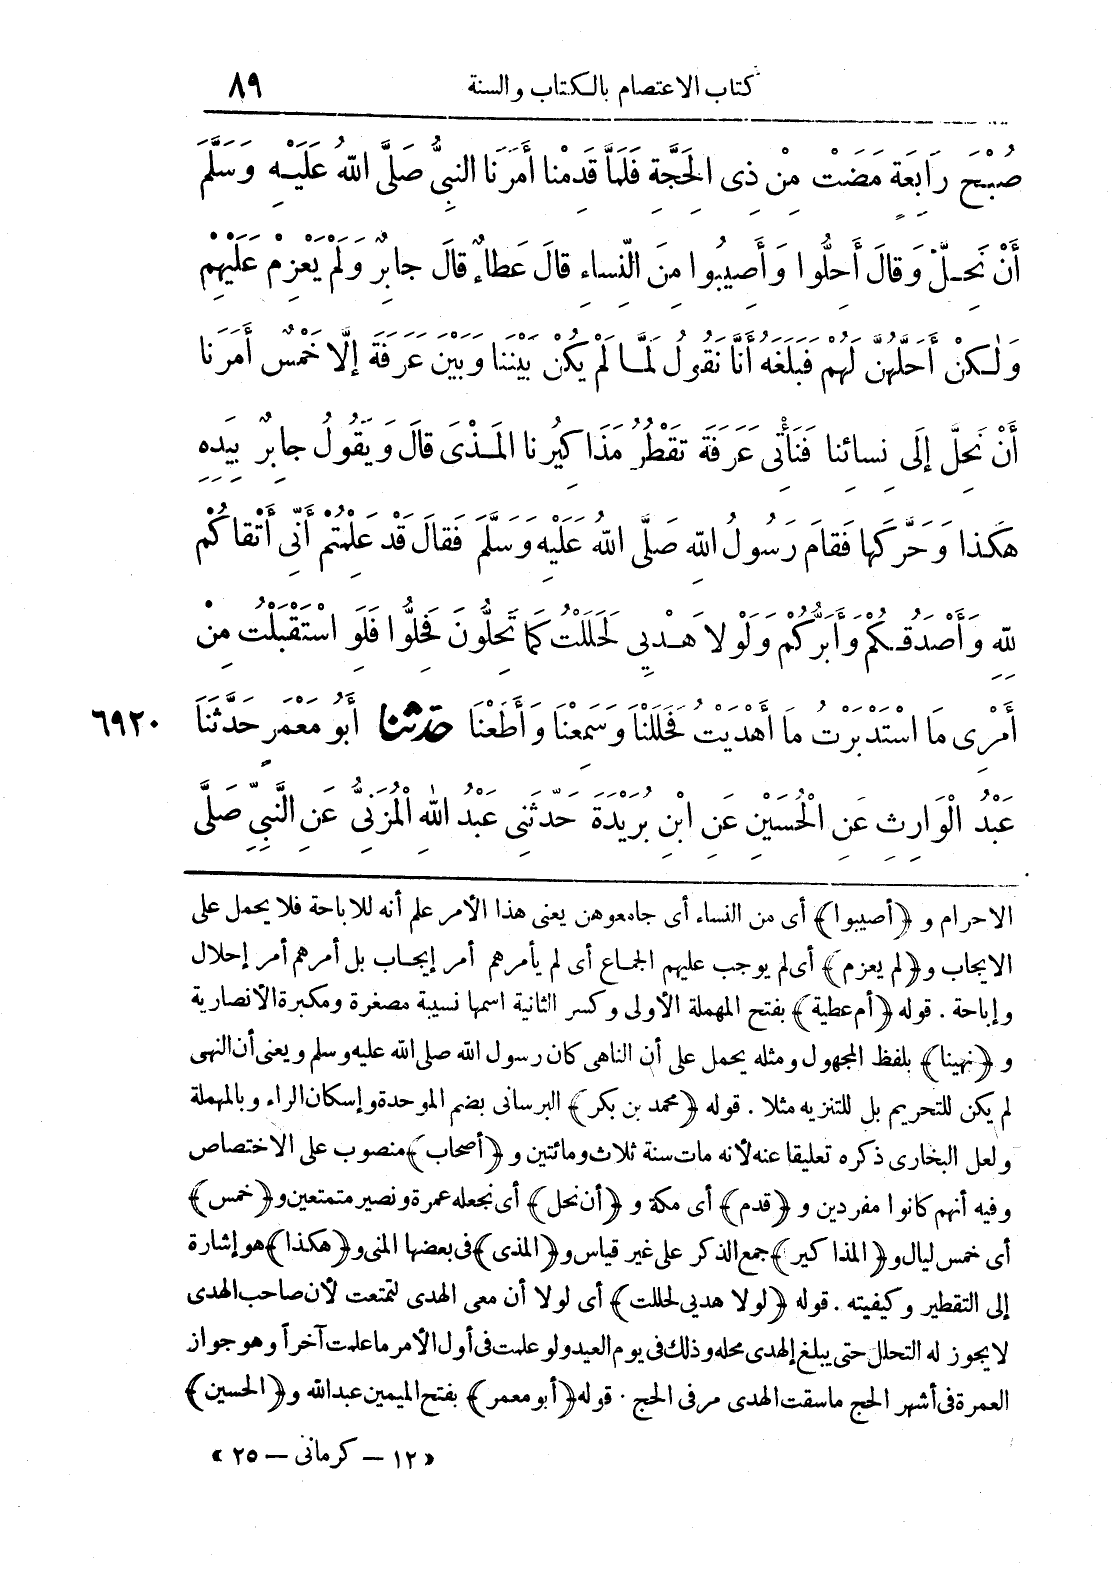 كتاب الاعتصام بالكتاب والسنة ٨٩
صُبْحَ رَابِعَةٍ مَضَتْ مِنْ ذِى الْحَجَّةِ فَلَمَّا قَدِمْنا أَمَرَنَا النبيُّ صَلَّى اللهُ عَلَيْهِ وَسَلَّمَ
أَنْ نَحِلَّ وَقالَ أَحِلُّوا وَأَصِيبُوا مِنَ النِّساءِ قالَ عَطاءٌ قالَ جابِرٌ وَلَمْ يَعْزِمْ عَلَيْهِمْ
وَلٰكِنْ أَحَلَّهُنَّ لَهُمْ فَبَلَغَهُ أَنَّا نَقُولُ لَمَّا لَمْ يَكُنْ بَيْنَنا وَبَيْنَ عَرَفَةَ إِلَّا خَمْسٌ أَمَرَنا
أَنْ نَحِلَّ إِلَى نِسائِنا فَنَأْتِى عَرَفَةَ تَقْطُرُ مَذَاكِيرُنا الْمَذْىَ قالَ وَيَقُولُ جابِرٌ بِيَدِهِ
هَكَذا وَحَرَّكَها فَقامَ رَسُولُ اللهِ صَلَّى اللهُ عَلَيْهِ وَسَلَّمَ فَقالَ قَدْ عَلِمْتُمْ أَنِّى أَتْقاكُمْ
لِلّهِ وَأَصْدَقُكُمْ وَأَبَرُّكُمْ وَلَوْلا هَدْيِي لَحَلَلْتُ كَما تَحِلُّونَ فَحِلُّوا فَلَوِ اسْتَقْبَلْتُ مِنْ
أَمْرِى مَا اسْتَدْبَرْتُ مَا أَهْدَيْتُ فَحَلَلْنَا وَسَمِعْنَا وَأَطَعْنَا حَدَّثَنَا أَبُو مَعْمَرٍ حَدَّثَنَا ٦٩٢٠
عَبْدُ الْوَارِثِ عَنِ الْحُسَيْنِ عَنِ ابْنِ بُرَيْدَةَ حَدَّثَنِى عَبْدُ اللهِ الْمُزَنِىُّ عَنِ النَّبِيِّ صَلَّى
الاحرام و ﴿أصيبوا﴾ أى من النساء أى جامعوهن يعنى هذا الأمر علم أنه للاباحة فلا يحمل على
الايجاب و﴿لم يعزم﴾ أى لم يوجب عليهم الجماع أى لم يأمرهم أمر إيجاب بل أمرهم أمر إحلال
وإباحة . قوله ﴿أم عطية﴾ بفتح المهملة الأولى وكسر الثانية اسمها نسيبة مصغرة ومكبرة الأنصارية
و ﴿نهينا﴾ بلفظ المجهول ومثله يحمل على أن الناهى كان رسول الله صلى الله عليه وسلم ويعنى أن النهى
لم يكن للتحريم بل للتنزيه مثلا . قوله ﴿محمد بن بكر﴾ البرسانى بضم الموحدة وإسكان الراء وبالمهملة
ولعل البخارى ذكره تعليقا عنه لأنه مات سنة ثلاث ومائتين و ﴿أصحاب﴾ منصوب على الاختصاص
وفيه أنهم كانوا مفردين و ﴿قدم﴾ أى مكة و ﴿أن نحل﴾ أى نجعله عمرة ونصير متمتعين و﴿خمس﴾
أى خمس ليال و﴿المذاكير﴾ جمع الذكر على غير قياس و﴿المذى﴾ فى بعضها المنى و﴿هكذا﴾ هو إشارة
إلى التقطير وكيفيته . قوله ﴿لولا هديي لحللت﴾ أى لولا أن معى الهدى لتمتعت لأن صاحب الهدى
لا يجوز له التحلل حتى يبلغ الهدى محله وذلك فى يوم العيد ولو علمت فى أول الأمر ما علمت آخراً وهو جواز
العمرة فى أشهر الحج ما سقت الهدى مر فى الحج . قوله ﴿أبو معمر﴾ بفتح الميمين عبد الله و﴿الحسين﴾
«١٢ – كرمانى – ٢٥»